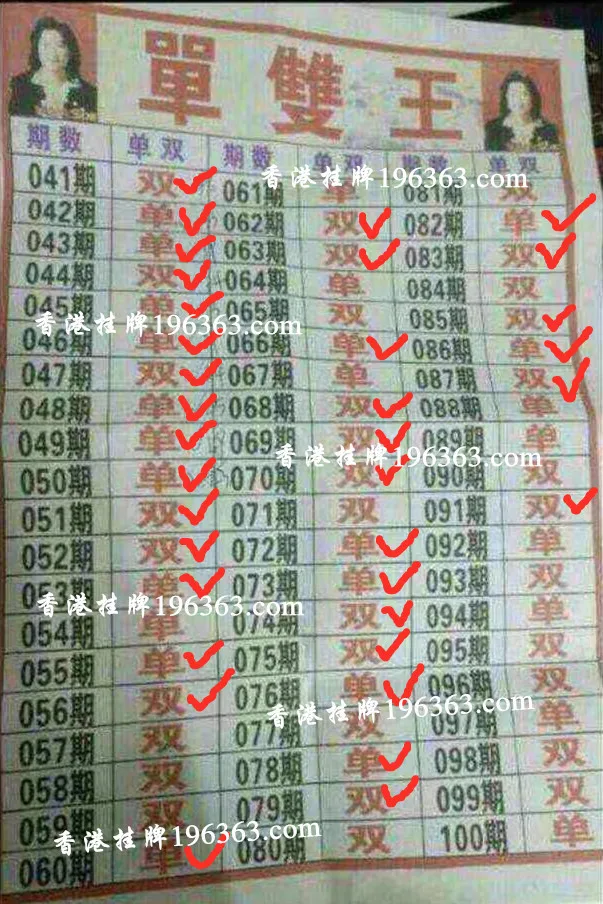 單雙王
期数 单双 期数 单双 期数 单双
041期 双 061期 单 081期 双
香港挂牌196363.com
042期 单 062期 双 082期 单
043期 单 063期 双 083期 双
044期 双 064期 单 084期 双
045期 单 065期 双 085期 双
香港挂牌196363.com
046期 单 066期 单 086期 单
047期 双 067期 单 087期 双
048期 单 068期 双 088期 单
049期 单 069期 双 089期 单
香港挂牌196363.com
050期 单 070期 双 090期 双
051期 双 071期 双 091期 双
052期 双 072期 单 092期 单
053期 单 073期 单 093期 双
香港挂牌196363.com
054期 单 074期 双 094期 双
055期 单 075期 双 095期 双
056期 双 076期 单 096期 双
香港挂牌196363.com
057期 双 077期 双 097期 单
058期 双 078期 单 098期 双
059期 双 079期 双 099期 双
香港挂牌196363.com
060期 单 080期 双 100期 单